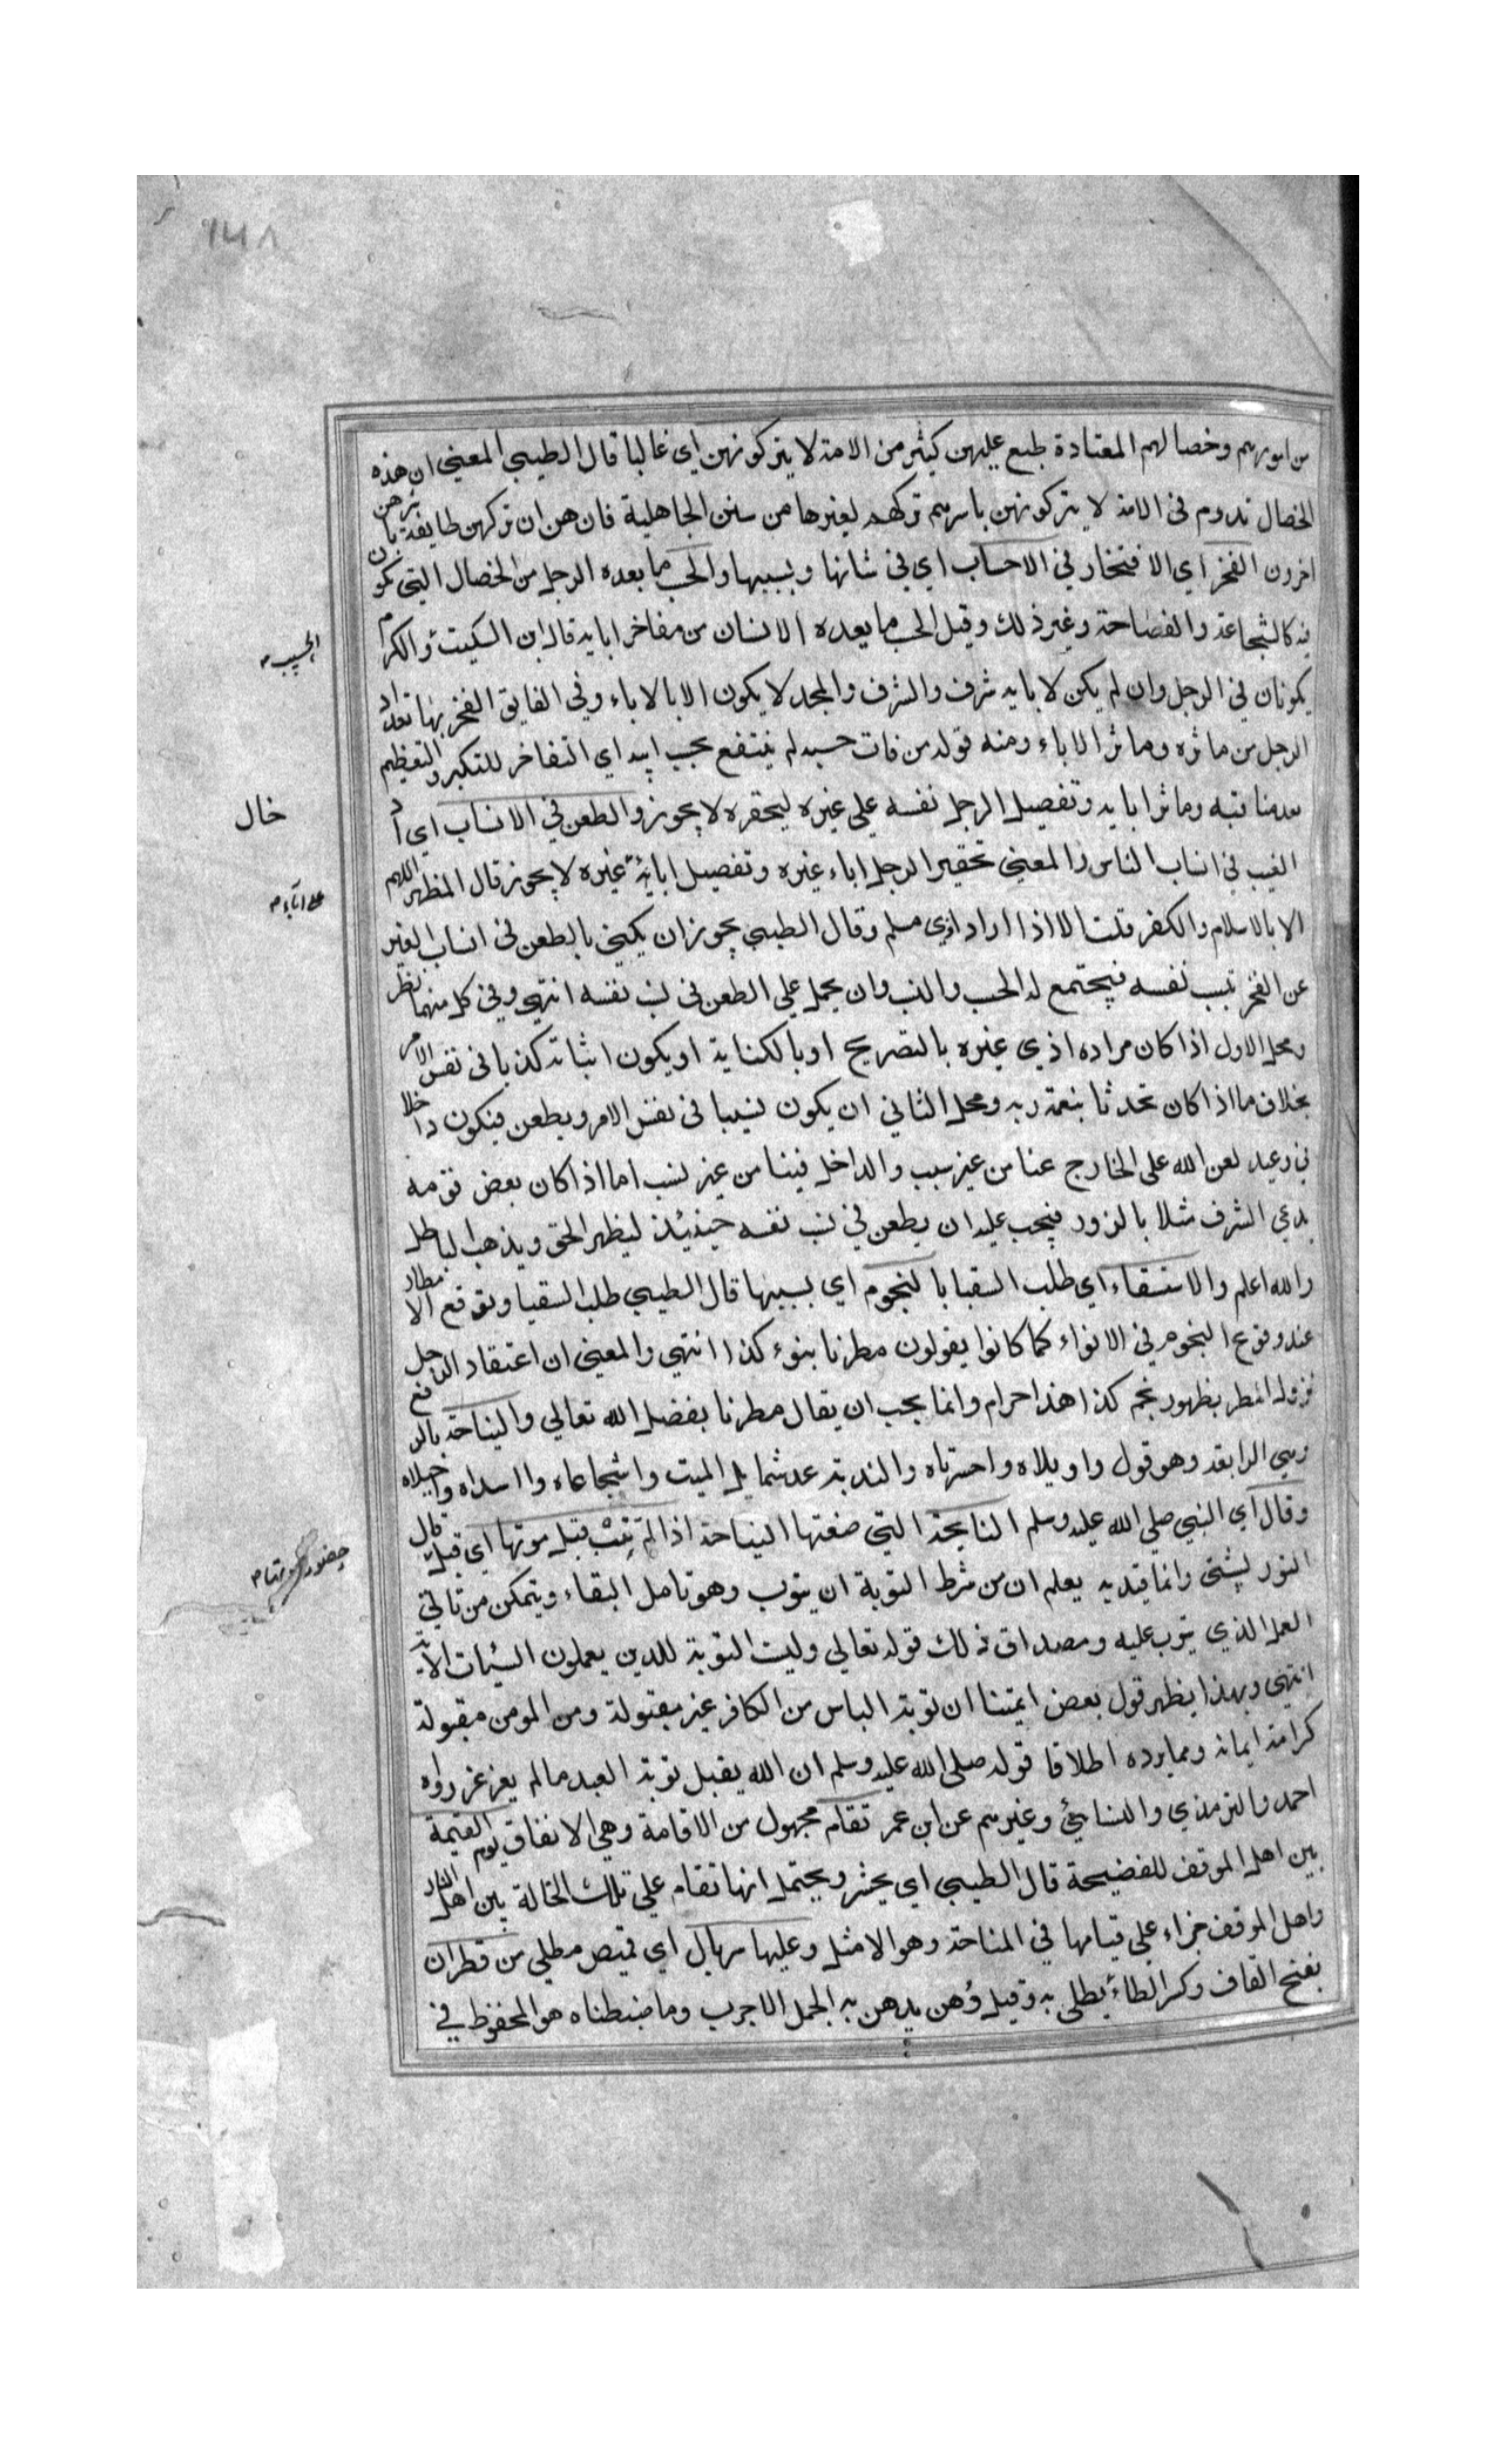 من امورهم وخصالهم المعتادة طبع عليهن كثير من الامة لا يتركونهن اي غالبا قال الطيبي المعني ان هذه
الخصال تدوم في الامة لا يتركونهن باسرهم تركهم لغيرها من سنن الجاهلية فان هن ان تركهن طايفة باشرهن
اخرون الفخر اي الافتخار في الاحساب اي في شانها وبسببها والحسب ما يعده الرجل من الخصال التي تكون
فيه كالشجاعة والفصاحة وغير ذلك وقيل الحسب ما يعده الانسان من مفاخر ابايه قال ابن السكيت والكرم
الحسب
يكونان في الرجل وان لم يكن لابايه شرف والشرف والمجد لا يكون الا بالاباء وفي الفايق الفخر بها تعداد
الرجل من ماثره وماثر الاباء ومنه قوله من فات حسبه لم ينتفع بحسب ابيه اي التفاخر للتكبر والتعظيم
بعد مناقبه وماثر ابايه وتفصيل الرجل نفسه علي غيره ليحقره لا يجوز والطعن في الانساب اي اد
خال
العيب في انساب الناس والمعني تحقير الرجل اباء غيره وتفصيل ابائه غيره لا يجوز قال المظهر اللهم
علي اباء
الا بالاسلام والكفر قلت الا اذا اراد اذي مسلم وقال الطيبي يجوز ان يكني بالطعن في انساب الغير
عن الفخر بنسب نفسه فيجتمع له الحسب والنسب وان يحمل علي الطعن في نسب نفسه انتهي وفي كل منهما نظر
ومحل الاول اذا كان مراده اذي غيره بالتصريح او بالكناية او يكون اثباته كذبا في نفس الامر
بخلاف ما اذا كان تحدثا بنعمة ربه ومحل الثاني ان يكون نسيبا في نفس الامر ويطعن فيكون داخلا
في وعيد لعن الله على الخارج عنا من غير سبب والداخل فينا من غير نسب اما اذا كان بعض قومه
يدعي الشرف مثلا بالزور فيجب عليه ان يطعن في نسب نفسه حينئذ ليظهر الحق ويذهب الباطل
والله اعلم والاستسقاء اي طلب السقيا بالنجوم اي بسببها قال الطيبي طلب السقيا وتوقع الامطار
عند وقوع النجوم في الانواء كما كانوا يقولون مطرنا بنوء كذا انتهي والمعني ان اعتقاد الرجل
نزول المطر بظهور نجم كذا هذا حرام وانما يجب ان يقال مطرنا بفضل الله تعالي والنياحة بالرفع
وهي الرابعة وهو قول واويلاه واحسرتاه والندبة عد شمايل الميت واشجاعاه وااسداه واجبلاه
وقال اي النبي صلي الله عليه وسلم النايحة التي صنعتها النياحة اذا لم تتب قبل موتها اي قبل قال
حضور موتها
التوربشتي وانما قيد به يعلم ان من شرط التوبة ان يتوب وهو تامل البقاء ويتمكن من تاتي
العمل الذي يتوب عليه ومصداق ذلك قوله تعالي وليست التوبة للذين يعملون السيئات الاية
انتهي وبهذا يظهر قول بعض ايمتنا ان توبة الياس من الكافر غير مقبولة ومن المومن مقبولة
كرامة ايمانه ومما يرده اطلاقا قوله صلي الله عليه وسلم ان الله يقبل توبة العبد ما لم يغرغر رواه
احمد والترمذي والنسائي وغيرهم عن ابن عمر تقام مجهول من الاقامة وهي الانفاق يوم القيمة
بين اهل الموقف للفضيحة قال الطيبي اي يحشر ويحتمل انها تقام علي تلك الحالة بين اهل النار
واهل الموقف جزاء علي قيامها في المناحة وهو الامثل وعليها سربال اي قميص مطلي من قطران
بفتح القاف وكسر الطاء يطلي به وقيل دهن يدهن به الجمل الاجرب وما ضبطناه هو المحفوظ في